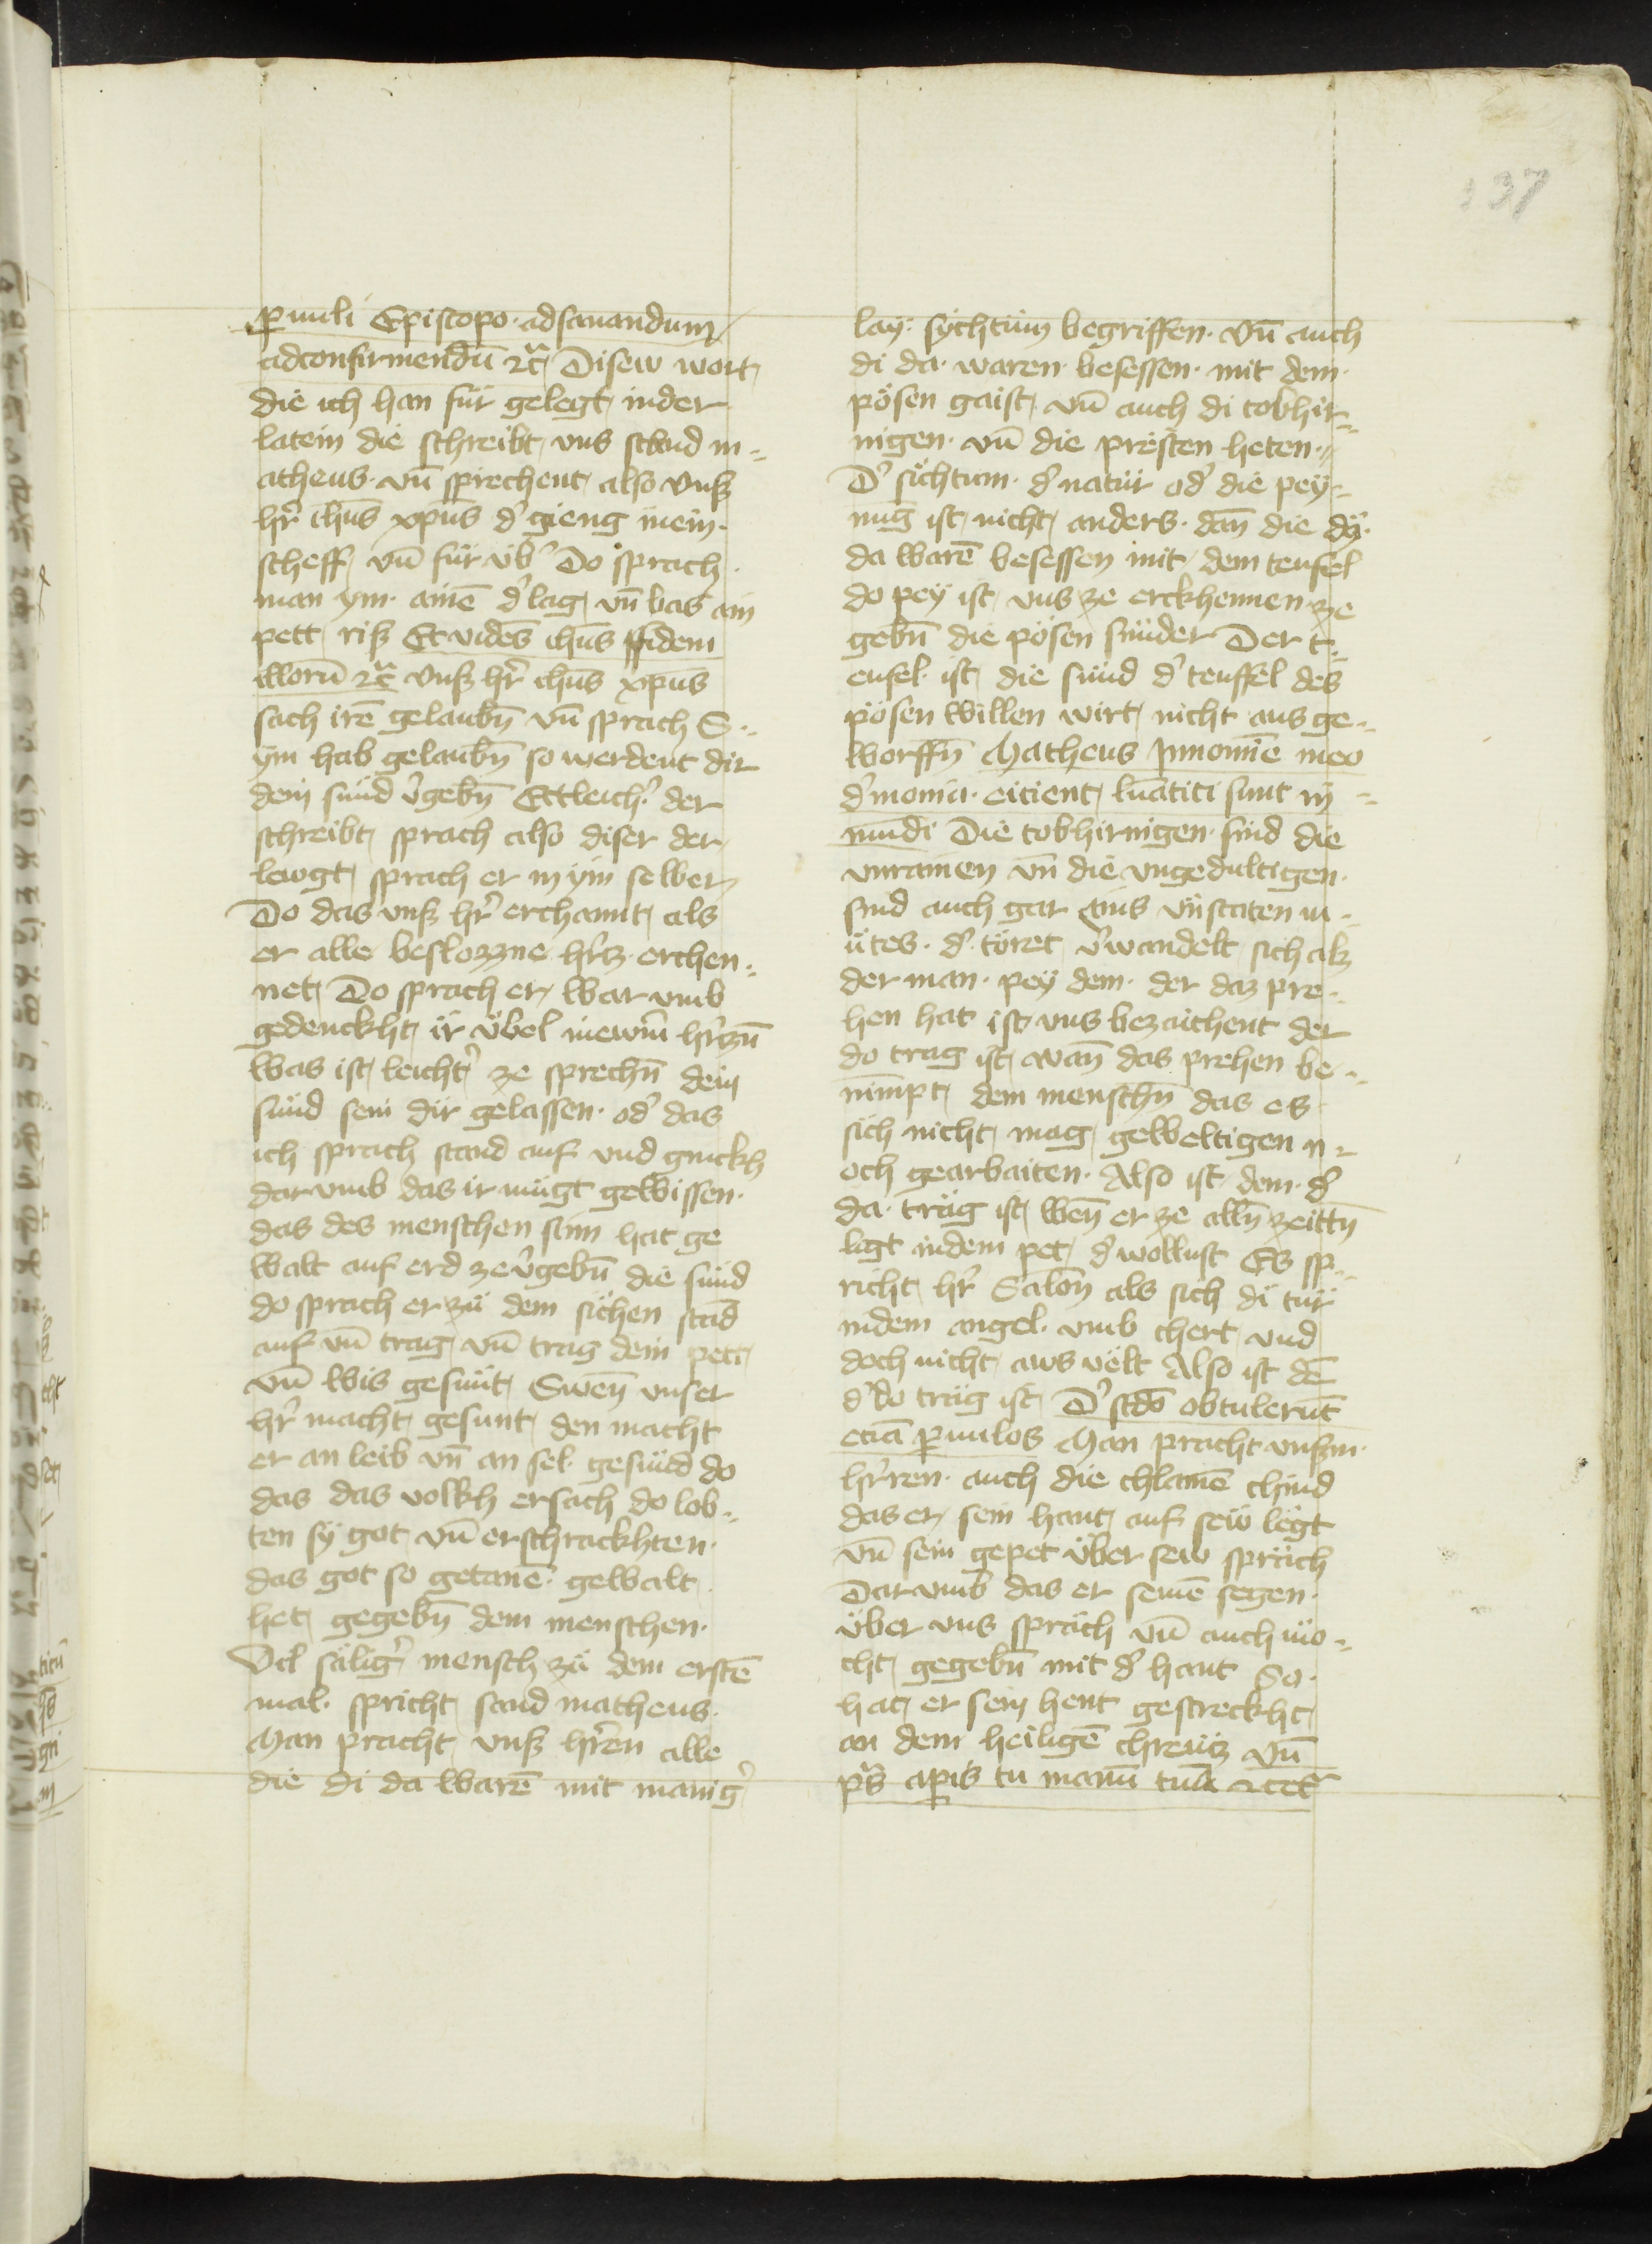 137
ꝑuuli Episcopo · adsanandum
adconfirmendū ⁊cᷓ Disew wort
die ich han für gelegt inder
latein die schreibt vns sand m⸗
atheus · vn̄ sprechent also vnſʒ
hr̄ ihūs xp̄us dʾ gieng inein
scheff vn̄ für vbʾ Do sprach
man ym · ainē dʾ lag vn̄ bas ain
pett ris Et vidēs ihūs ffidem
illorū ⁊cᷓ vnſʒ hr̄ ihūs xp̄us
sach irē gelaubn̄ vn̄ sprach S⸗
ym hab gelaubn̄ so werdent dir
dein sünd v̾gebn̄ Ettleichʾ der
schreibt sprach also diser der
lewgt sprach er in ym selber
Do das vnſʒ hr̄ erchannt als
er alle beslozzne hr̄cz erchen⸗
net Do sprach er war vmb
gedenckht ir übel inewrn̄ hr̄czn̄
Was ist leichtʾ ze sprechn̄ dein
sünd sein dir gelassen · odʾ das
ich sprach stand auf vnd gnickh
dar vmb das ir mügt gewissen ·
das des menschen sünn hat ge
walt auf erd ze v̾gebn̄ die sünd
do sprach er zü dem sichen stād
auf vn̄ trag vn̄ trag dein pett
vn̄ wis gesunt Swen̄ vnser
hr̄ macht gesunt den macht
er an leib vn̄ an sel · gesund do
das das volkh ersach do lob⸗
ten sÿ got vn̄ erschrackhten ·
das got so getanē · gewalt
het gegebn̄ dem menschen ·
Vil säligʾ mensch zü dem erstē
mal · spricht sand matheus ·
Man pracht vnſʒ hr̄en alle
die di da warē mit manigʾ
laÿ · sÿchtüm begriffen · vn̄ auch
di da · waren · besessen · mit dem ·
pösen gaist vn̄ auch di tobhir⸗
nigen · vn̄ die presten heten ·
Dʾ sichtum · dʾ natür odʾ die peÿ⸗
nūg ist nicht anders · dan̄ die dÿ ·
da warē besessen mit dem teufel
do peÿ ist vns ze erckhennen ze
gebn̄ die pösen sünder Der t⸗
eufel · ist die sünd dʾ teuffel des
pösen willen wirt nicht aus ge⸗
worffn̄ Matheus Innomīe meo
dʾmonia · eicient lūatici sunt in⸗
mūdi Die tobhirnigen · sind die
vnrainen vn̄ die vngedultigen ·
sind auch gar ains vnstaten m⸗
ütes · dʾ töret v̾wandelt sich alz
der man · peÿ dem · der daz pre⸗
hen hat ist vns bezaichent der
do trag ist wan̄ das prehen be⸗
nimpt dem menschn̄ das es
sich nicht mag geweltigen n⸗
och gearbaiten · Also ist dem · dʾ
da · träg ist wen̄ er ze alln̄ zeittn̄
ligt indem pet dʾ wollust Es sp⸗
richt hr̄ Salōn als sich di tür
indem angel · vmb chert vnd
doch nicht aws vëlt Also ist dē
dʾ do träg ist Dʾ scdō obtulerūt
eciā ꝑuulos Man pracht vnſʒm ·
hr̄ren · auch die chlainē chind
das er sein hant auf sew legt
vn̄ sein gepet über sew spräch
Dar vmb das er seinē segen ·
über vns spräch vn̄ auch mö⸗
cht gegebn̄ mit dʾ hant So ·
hat er sein hent gestreckht
an dem heiligē chreücz vn̄
ps̄ aꝑis tu manū tuā ⁊cetʾ